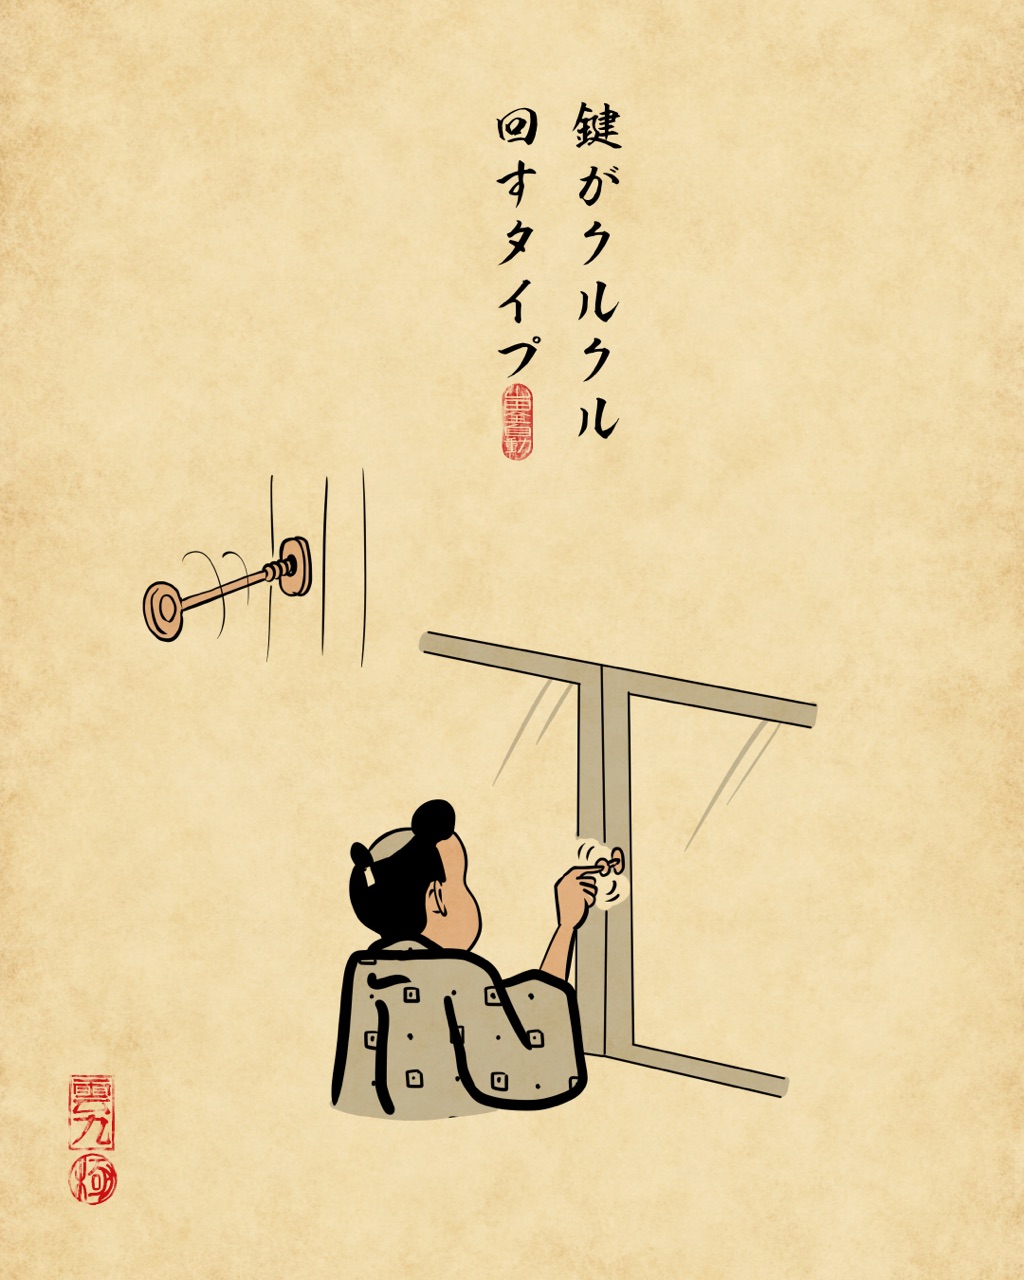 鍵がクルクル
回すタイプ